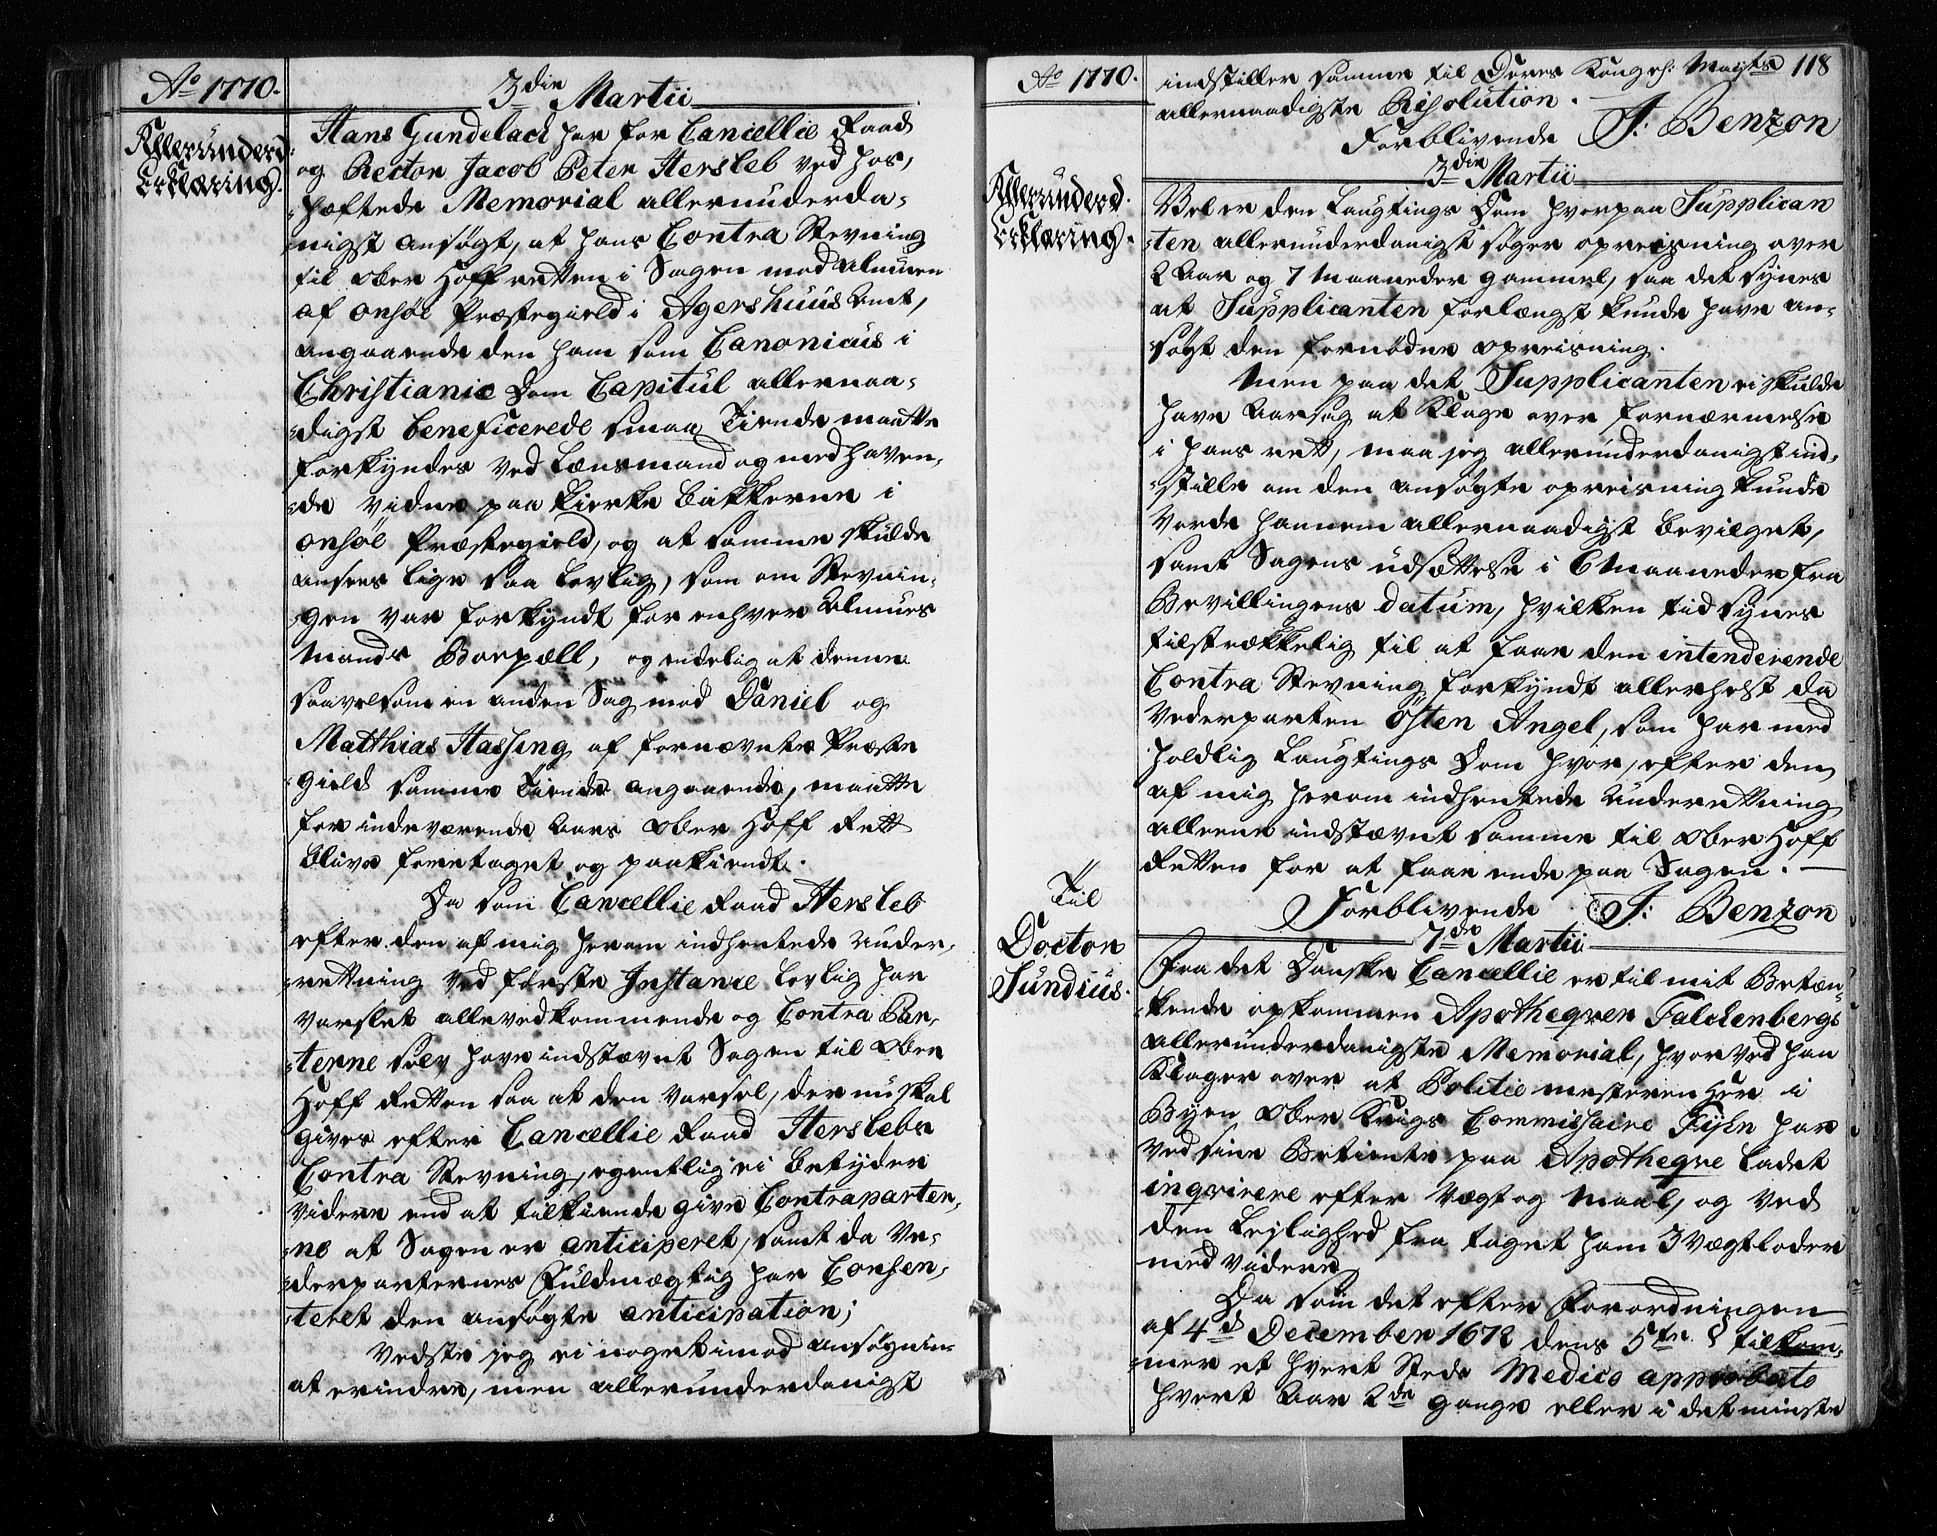 Ao 1770.
3die Martii
Allerunderd:
Erklæring.
Hans Gundelach har for Cancellie Raad
og Rector Jacob Peter Hersleb ved hos,
hæftede Memorial allerunderda,
nigst ansøgt, at hans Contra Stevning
til Ober Hoff Retten i Sagen mod Almuen
af Onsøe Præstegield i Agershuus Amt,
angaaende den ham som Canonicus i
Christianiæ Dom Capitul allernaa,
digst beneficerede smaa Tiende maatte
forkyndes ved Lænsmand og medhaven,
de vidne paa Kierke Bakkerne i
Onsøe Præstegield, og at samme skulde
ansees lige saa lovlig, som om Stevnin,
gen var forkyndt for enhver Almues
Mands Boepæll, og endelig at denne
saavelsom en anden Sag mod Daniel og
Matthias Hassing af fornævnte Præste
Gield samme Tiende angaaende, maatte
for indeværende Aars Ober Hoff Rett
blive foretaget og paakiendt.
Da som Cancellie Raad Hersleb
efter den af mig herom indhentede Under,
rettning ved første Instance lovlig har
varslet alle vedkommende og Contra Par,
terne selv have indstævnt Sagen til Ober
Hoff Retten saa at den Varsel, der nu skal
gives efter Cancellie Raad Herslebs
Contra Stevning, egentlig ei betyder
videre end at tilkiende give Contraparter,
ne at Sagen er anticiperet, samt da Ve,
derparternes Fuldmægtig har Consen,
teret den ansøgte anticipation;
Vedste jeg ei noget imod ansøgnin,
at erindre, men allerunderdanigst
Ao 1770.
118
indstiller samme til Deres Kongel: Mayts
allernaadigste Resolution.
Forblivende J: Benzon
3die Martii
Allerunderd.
Erklæring.
Vel er den Laugtings Dom hvorpaa Supplican
ten allerunderdanigst søger opreisning over
2 Aar og 7 Maaneder gammel, saa det synes
at Supplicanten forlængst kunde have an,
søgt den fornødne opreisning.
Men paa det Supplicanten ei skulde
have Aarsag at Klage over fornærmelse
i hans rett, maa jeg allerunderdanigst ind,
stille om den ansøgte opreisning kunde
vorde hannem allernaadigst bevilget,
samt Sagens udsættelse i 6 Maaneder fra
Bevillingens datum, hvilken tid synes
tilstrækkelig til at faae den intenderende
Contra Stevning forkyndt allerhelst da
Vederparten Östen Angel, som har med
holdlig Laugtings Dom hvor, efter den
af mig herom indhentede Underrettning
alleene indstævnt samme til Ober Hoff
Retten for at faae ende paa Sagen.
Forblivende J: Benzon
7de Martii
Til
Doctor
Sundius.
Fra det Danske Cancellie er til mit Betæn,
kende opkommen Apotheqver Falckenbergs
allerunderdanigste Memorial, hvorved han
Klager over at Politie mesteren her i
Byen Ober Krigs Commissaire Fysn har
ved sine Betiente paa Apotheqve ladet
inqvirere efter Vægt og Maal, og ved
den Lejlighed fra taget ham 3 Vægtlodder
med videre
Da som det efter Forordningen
af 4d December 1672 dens 5te § tilkom,
mer et hvert Steds Medico approbato
hvert Aar 2de gange eller i det minste